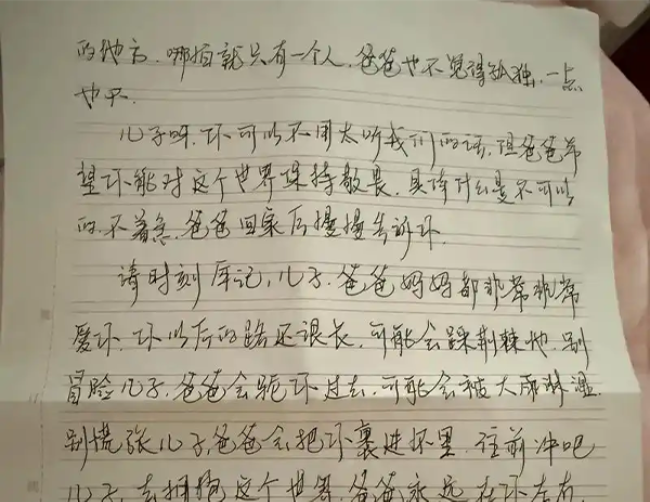 的地方，哪怕就只有一个人，爸爸也不觉得孤独，一点
也不.
儿子呀，你可以不用太听我们的话，但爸爸希
望你能对这个世界保持敬畏，具体什么是不可以
的不着急，爸爸回家后慢慢告诉你.
请时刻牢记，儿子，爸爸妈妈都非常非常
爱你，你以后的路还很长，可能会踩荆棘地，别
冒险儿子，爸爸会驼你过去，可能会被大雨淋湿
别慌张儿子，爸爸会把你裹进怀里，往前冲吧
儿子，去拥抱这个世界，爸爸永远在你左右，